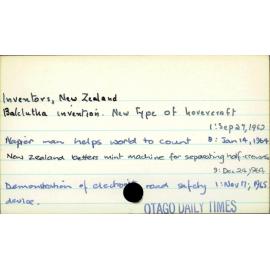 Inventors, New Zealand
Balclutha invention. New Type of hovercraft
1: Sep 27, 1962
Napier man helps world to count 8: Jan 14, 1964
New Zealand betters mint machine for separating half-crowns
9: Dec 24, 1964
Demonstration of electronic road safety 1: Nov 17, 1965
device.
OTAGO DAILY TIMES